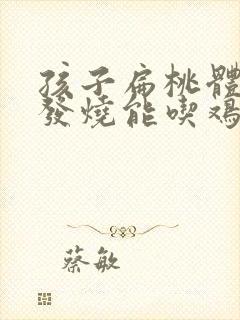 孩子扁桃體
發燒能喫鴻
蔡敏